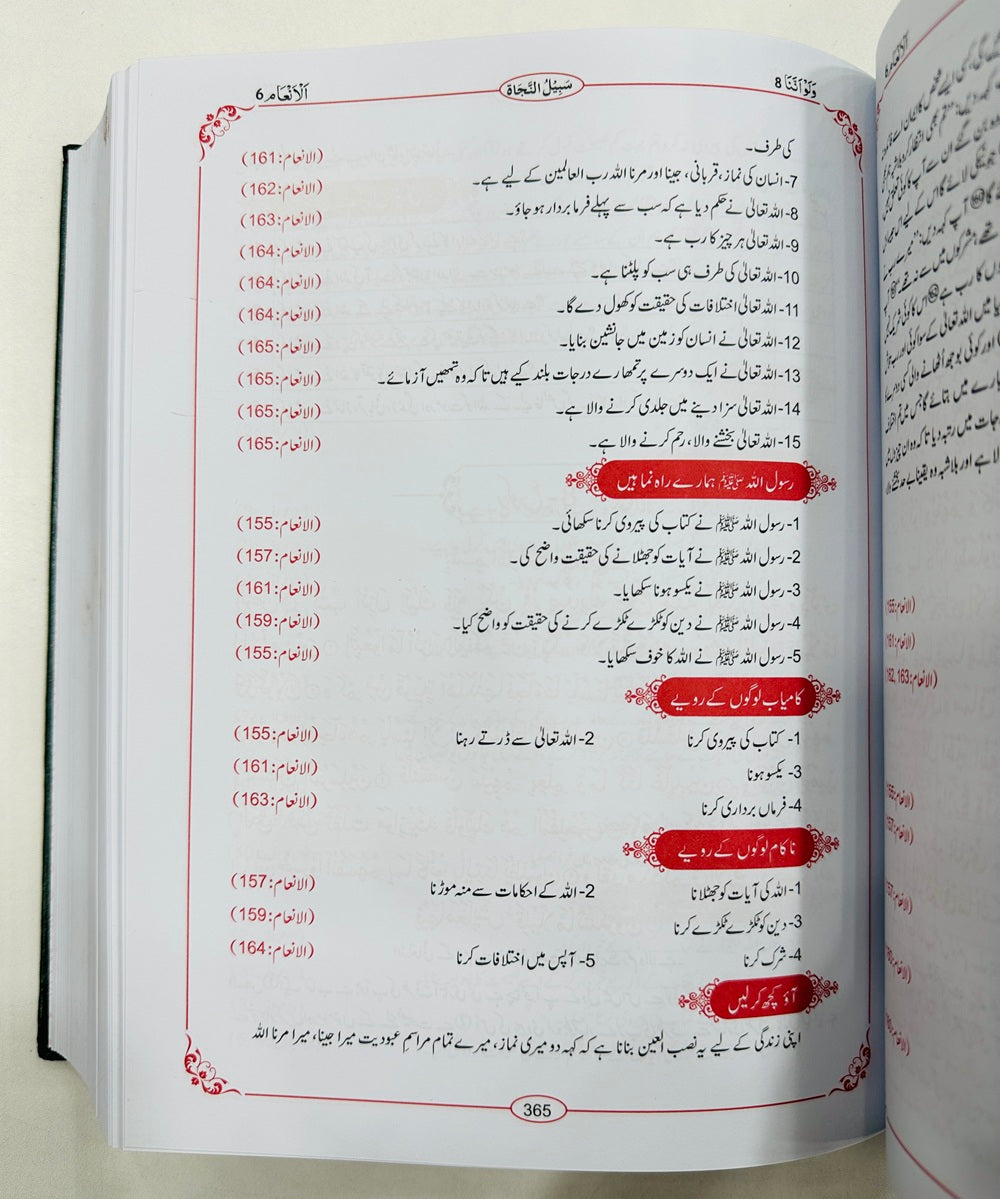 وَلَوْ اَنَّنَا 8 سَبِيْلُ النَّجَاة اَلْاَنْعَام 6
کی طرف۔ (الانعام:161)
7- انسان کی نماز، قربانی، جینا اور مرنا اللہ رب العالمین کے لیے ہے۔ (الانعام:162)
8- اللہ تعالیٰ نے حکم دیا ہے کہ سب سے پہلے فرما بردار ہو جاؤ۔ (الانعام:163)
9- اللہ تعالیٰ ہر چیز کا رب ہے۔ (الانعام:164)
10- اللہ تعالیٰ کی طرف ہی سب کو پلٹنا ہے۔ (الانعام:164)
11- اللہ تعالیٰ اختلافات کی حقیقت کو کھول دے گا۔ (الانعام:164)
12- اللہ تعالیٰ نے انسان کو زمین میں جانشین بنایا۔ (الانعام:165)
13- اللہ تعالیٰ نے ایک دوسرے پر تمھارے درجات بلند کیے ہیں تاکہ وہ تمھیں آزمائے۔ (الانعام:165)
14- اللہ تعالیٰ سزا دینے میں جلدی کرنے والا ہے۔ (الانعام:165)
15- اللہ تعالیٰ بخشنے والا، رحم کرنے والا ہے۔ (الانعام:165)
رسول اللہ ﷺ ہمارے راہ نما ہیں
1- رسول اللہ ﷺ نے کتاب کی پیروی کرنا سکھائی۔ (الانعام:155)
2- رسول اللہ ﷺ نے آیات کو جھٹلانے کی حقیقت واضح کی۔ (الانعام:157)
3- رسول اللہ ﷺ نے یکسو ہونا سکھایا۔ (الانعام:161)
4- رسول اللہ ﷺ نے دین کو ٹکڑے ٹکڑے کرنے کی حقیقت کو واضح کیا۔ (الانعام:159)
5- رسول اللہ ﷺ نے اللہ کا خوف سکھایا۔ (الانعام:155)
کامیاب لوگوں کے رویے
1- کتاب کی پیروی کرنا 2- اللہ تعالیٰ سے ڈرتے رہنا (الانعام:155)
3- یکسو ہونا (الانعام:161)
4- فرماں برداری کرنا (الانعام:163)
ناکام لوگوں کے رویے
1- اللہ کی آیات کو جھٹلانا 2- اللہ کے احکامات سے منہ موڑنا (الانعام:157)
3- دین کو ٹکڑے ٹکڑے کرنا (الانعام:159)
4- شرک کرنا 5- آپس میں اختلافات کرنا (الانعام:164)
آؤ کچھ کر لیں
اپنی زندگی کے لیے یہ نصب العین بنانا ہے کہ کہہ دو میری نماز، میرے تمام مراسمِ عبودیت میرا جینا، میرا مرنا اللہ
365